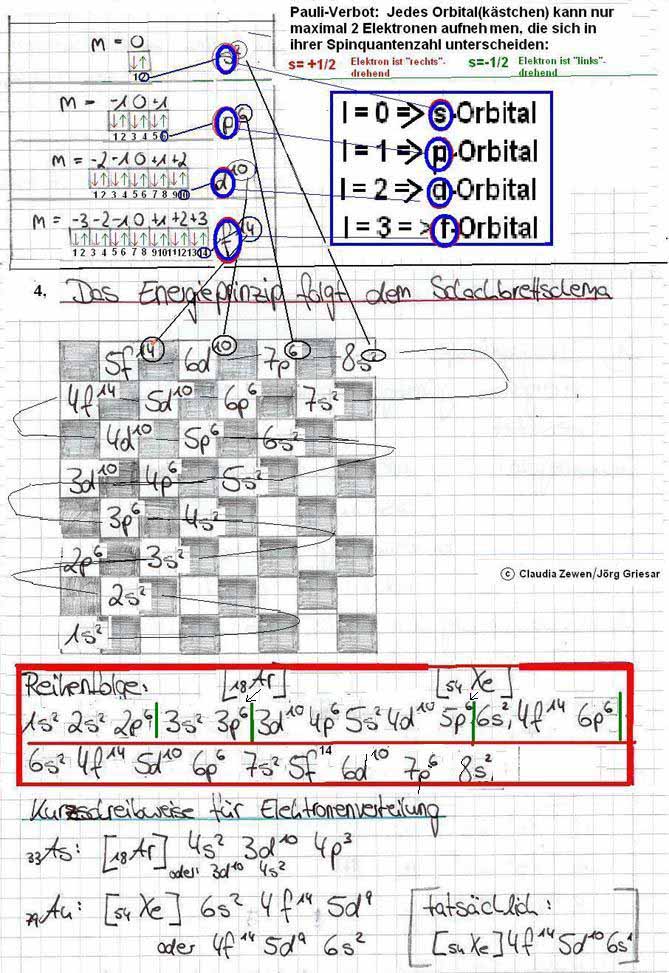 Pauli-Verbot: Jedes Orbital(kästchen) kann nur
maximal 2 Elektronen aufnehmen, die sich in
ihrer Spinquantenzahl unterscheiden:
s= +1/2 Elektron ist "rechts"-drehend s=-1/2 Elektron ist "links"-drehend
M = 0
↓↑
1 2
s²
M = -1 0 +1
↓↑ ↓↑ ↓↑
1 2 3 4 5 6
p⁶
M = -2 -1 0 +1 +2
↓↑ ↓↑ ↓↑ ↓↑ ↓↑
1 2 3 4 5 6 7 8 9 10
d¹⁰
M = -3 -2 -1 0 +1 +2 +3
↓↑ ↓↑ ↓↑ ↓↑ ↓↑ ↓↑ ↓↑
1 2 3 4 5 6 7 8 9 10 11 12 13 14
f¹⁴
l = 0 => s-Orbital
l = 1 => p-Orbital
l = 2 => d-Orbital
l = 3 = > f-Orbital
4. Das Energieprinzip folgt dem Schachbrettschema
5f¹⁴ 6d¹⁰ 7p⁶ 8s²
4f¹⁴ 5d¹⁰ 6p⁶ 7s²
4d¹⁰ 5p⁶ 6s²
3d¹⁰ 4p⁶ 5s²
3p⁶ 4s²
2p⁶ 3s²
2s²
1s²
© Claudia Zewen/Jörg Griesar
Reihenfolge: [₁₈Ar] [₅₄Xe]
1s² 2s² 2p⁶ | 3s² 3p⁶ | 3d¹⁰ 4p⁶ 5s² 4d¹⁰ 5p⁶ | 6s², 4f¹⁴ 6p⁶ |
6s² 4f¹⁴ 5d¹⁰ 6p⁶ 7s² 5f¹⁴ 6d¹⁰ 7p⁶ 8s²
Kurzschreibweise für Elektronenverteilung
₃₃As: [₁₈Ar] 4s² 3d¹⁰ 4p³
oder 3d¹⁰ 4s²
₇₉Au: [₅₄Xe] 6s² 4f¹⁴ 5d⁹
oder 4f¹⁴ 5d⁹ 6s²
[tatsächlich:
[₅₄Xe] 4f¹⁴ 5d¹⁰ 6s¹]